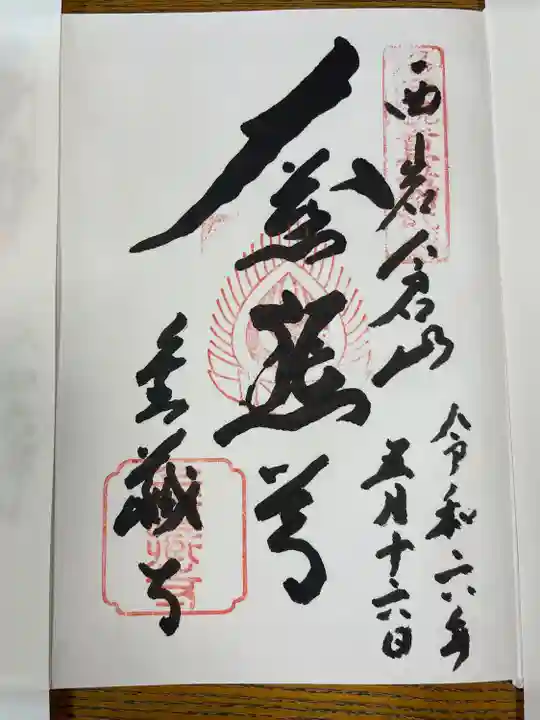 西岩倉山
令和六年
五月十六日
大慈悲尊
金蔵寺